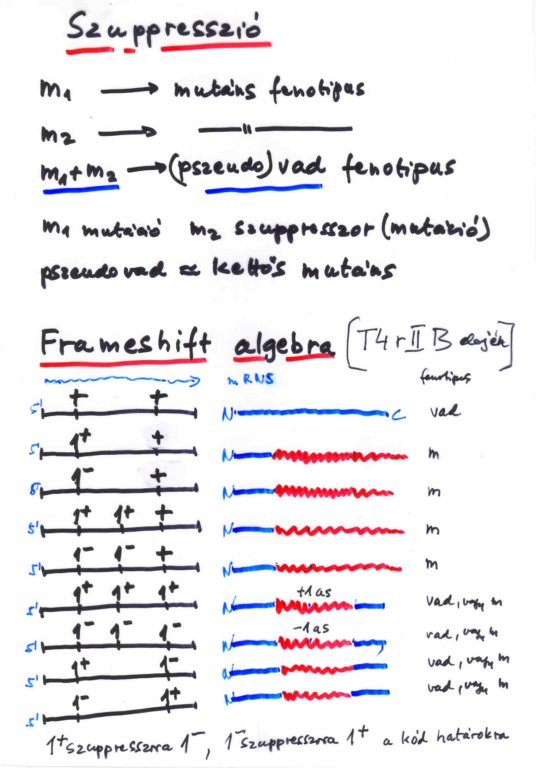 Szuppresszió
m₁ → mutáns fenotípus
m₂ → —〃—
m₁+m₂ → (pszeudo) vad fenotípus
m₁ mutáció m₂ szuppresszor (mutáció)
pszeudovad ≈ kettős mutáns
Frameshift algebra [T4 r II B elején]
mRNS fenotípus
5' + + N C vad
5' 1⁺ + N m
5' 1⁻ + N m
5' 1⁺ 1⁺ + N m
5' 1⁻ 1⁻ + N m
5' 1⁺ 1⁺ 1⁺ N +1 as vad, vagy m
5' 1⁻ 1⁻ 1⁻ N -1 as vad, vagy m
5' 1⁺ 1⁻ N vad, vagy m
5' 1⁻ 1⁺ N vad, vagy m
1⁺ szuppresszora 1⁻, 1⁻ szuppresszora 1⁺ a kód határokra